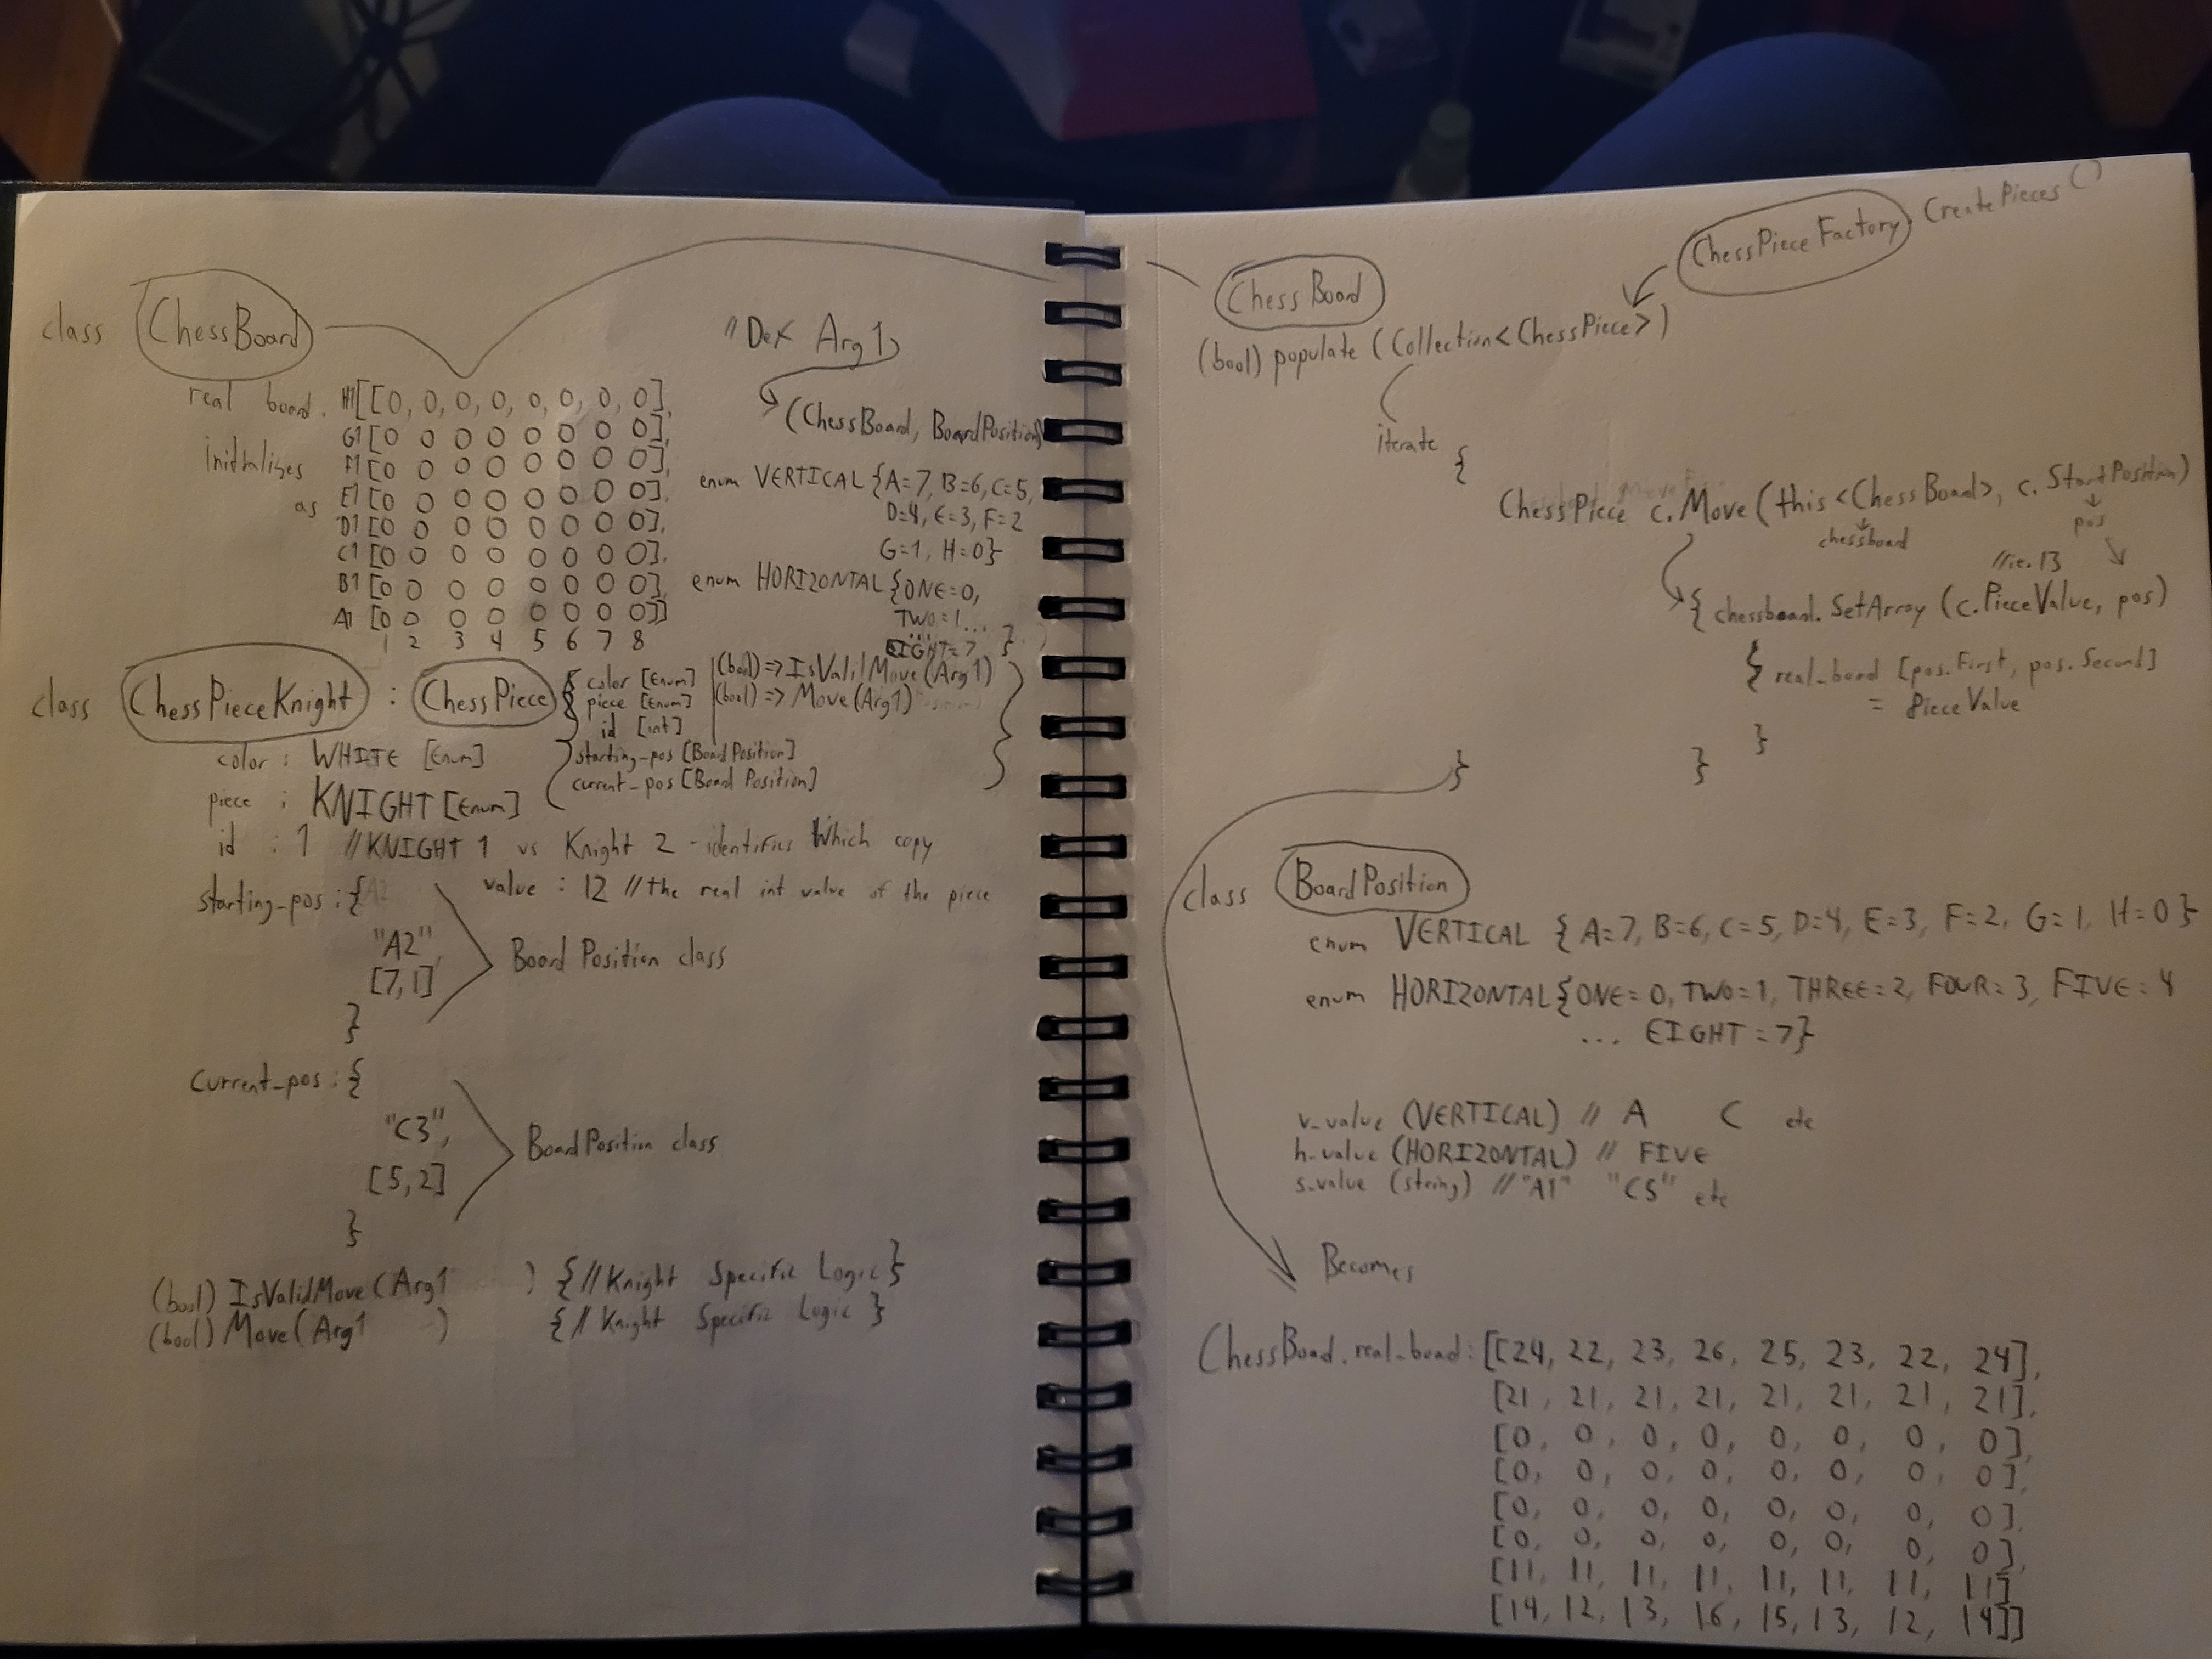 class ChessBoard
real board.
Initializes
as
H1[[0, 0, 0, 0, 0, 0, 0, 0],
G1[0 0 0 0 0 0 0 0],
F1[0 0 0 0 0 0 0 0],
E1[0 0 0 0 0 0 0 0],
D1[0 0 0 0 0 0 0 0],
C1[0 0 0 0 0 0 0 0],
B1[0 0 0 0 0 0 0 0],
A1[0 0 0 0 0 0 0 0]]
1 2 3 4 5 6 7 8
//Def Arg1
(ChessBoard, BoardPosition)
enum VERTICAL {A=7, B=6, C=5,
D=4, E=3, F=2
G=1, H=0}
enum HORIZONTAL {ONE=0,
TWO=1...
...
EIGHT=7 }
class ChessPieceKnight : ChessPiece
{ color [Enum]
piece [Enum]
id [int]
starting_pos [BoardPosition]
current_pos [Board Position]
(bool) => IsValidMove(Arg1)
(bool) => Move(Arg1)
}
color : WHITE [Enum]
piece : KNIGHT [Enum]
id : 1 //KNIGHT 1 vs Knight 2 - identifies Which copy
value : 12 //the real int value of the piece
starting_pos : {
"A2",
[7,1]
}
Board Position class
current_pos : {
"C3",
[5,2]
}
BoardPosition class
(bool) IsValidMove(Arg1 ) {//Knight Specific Logic}
(bool) Move(Arg1 ) {//Knight Specific Logic}
ChessPieceFactory. CreatePieces()
Chess Board
(bool) populate (Collection<ChessPiece>)
iterate {
ChessPiece c.Move(this<ChessBoard>, c. StartPosition)
chessboard
pos
//ie. 13
{ chessboard. SetArray (c.PieceValue, pos)
{ real_board [pos.First, pos.Second]
= PieceValue
}
}
}
class BoardPosition
enum VERTICAL { A=7, B=6, C=5, D=4, E=3, F=2, G=1, H=0}
enum HORIZONTAL{ONE=0, TWO=1, THREE=2, FOUR=3, FIVE=4
... EIGHT=7}
v_value (VERTICAL) // A C etc
h_value (HORIZONTAL) // FIVE
s_value (string) //"A1" "C5" etc
Becomes
ChessBoad.real_boad:[[24, 22, 23, 26, 25, 23, 22, 24],
[21, 21, 21, 21, 21, 21, 21, 21],
[0, 0, 0, 0, 0, 0, 0, 0],
[0, 0, 0, 0, 0, 0, 0, 0],
[0, 0, 0, 0, 0, 0, 0, 0],
[0, 0, 0, 0, 0, 0, 0, 0],
[11, 11, 11, 11, 11, 11, 11, 11]
[14, 12, 13, 16, 15, 13, 12, 14]]